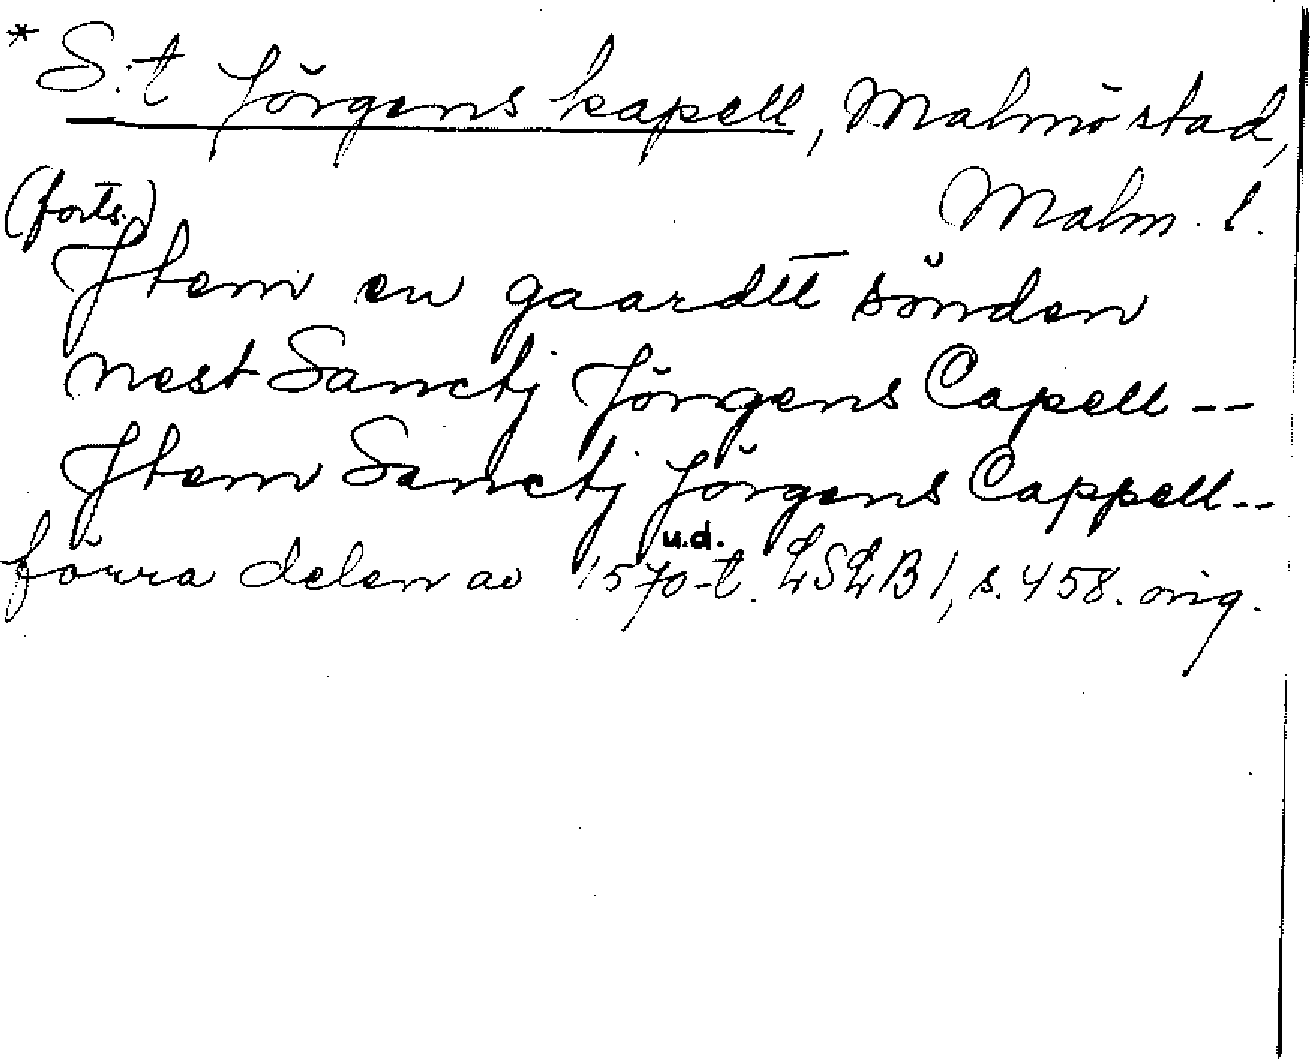 * S:t Jörgens kapell, Malmö stad,
(forts.) Malm. l.
Jtem en gaardtt sönden
nest Sanctj Jörgens Capell --
Jtem Sanctj Jörgens Cappell--
u.d.
förra delen av 1570-t. LSLB 1, s. 458. orig.